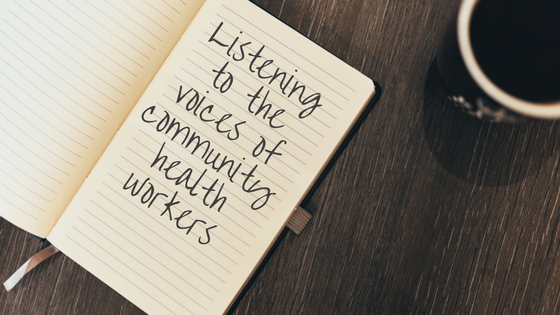 Listening
to the
voices of
community
health
workers